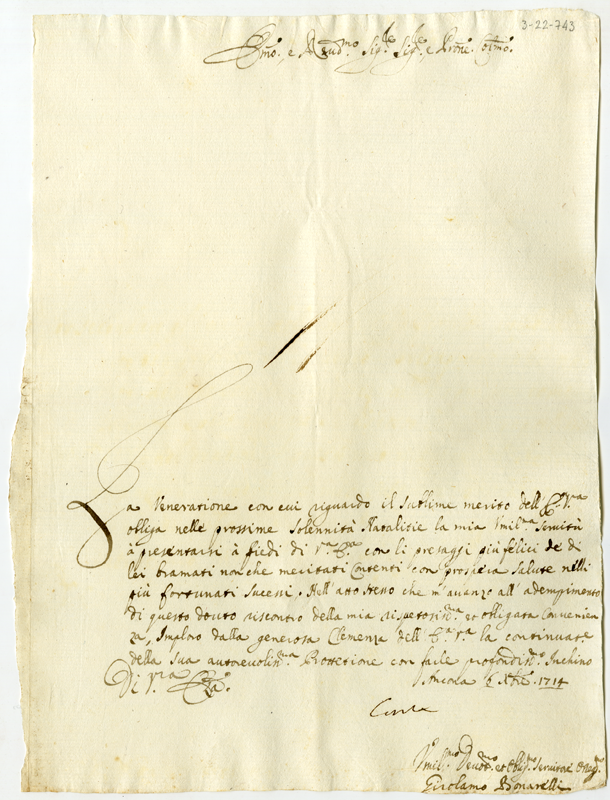 3-22-743
Emo. e Rmo Sigre. Sigre. e Prone. Colmo.
La Veneratione con cui riguardo il sublime merito dell'Ema. Vra
obliga nelle prossime Solennità Natalitie la mia Umilma servitù
à presentarsi à piedi di Vra Ema con li presaggi più felici de di
lei bramati non che meritati Contenti con prospera Salute nelli
più fortunati Sucessi. Nell'atto stesso che m'avanzo all'adempimento
di questo dovuto riscontro della mia rispettosissma. et obligata Convenien
za, Imploro dalla generosa Clemenza dell'Ema. Vra la continuata
della Sua autorevolissma Protettione con farle profondismo. Inchino
Di Vra Ema.
Ancona Xbre. 1714
Umilmo Devmo. et Obligmo. servitor
Girolamo Bonarelli